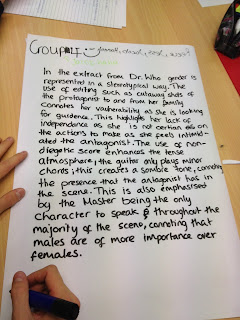 Group 4 :) Jannah, 
In the extract from Dr. Who gender is
represented in a stereotypical way. The
use of editing such as cutaway shots of
the protagonist to one from her family
connotes her vulnerability as she is looking
for guidance. This highlights her lack of
independence as she is not certain on
the actions to make as she feels intimid-
ated the antagonist. The use of non-
diegetic score enhances the tense
atmosphere, the guitar only plays minor
chords, this creates a sombre tone, connoting
the presence that the antagonist has in
the scene. This is also emphasised
by the Master being the only
character to speak & throughout the
majority of the scene, connoting that
males are of more importance over
females.